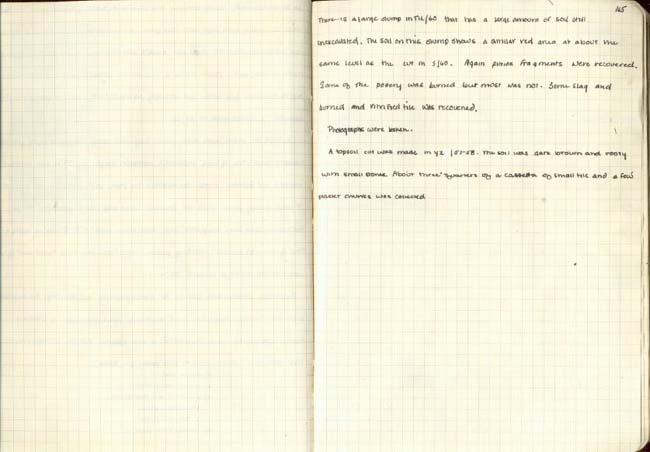 165
There is a large clump in T4/60 that has a large amount of soil still
unexcavated. The soil on this clump shows a similar red area at about the
same level as the cut in S/60. Again pithos fragments were recovered.
Some of the pottery was burned but most was not. Some slag and
burned and vitrified tile was recovered.
Photographs were taken.
A topsoil cut was made in Y2 / 57-58. The soil was dark brown and rooty
with small bone. About three quarters of a cassetta of small tile and a few
plaster chunks was collected